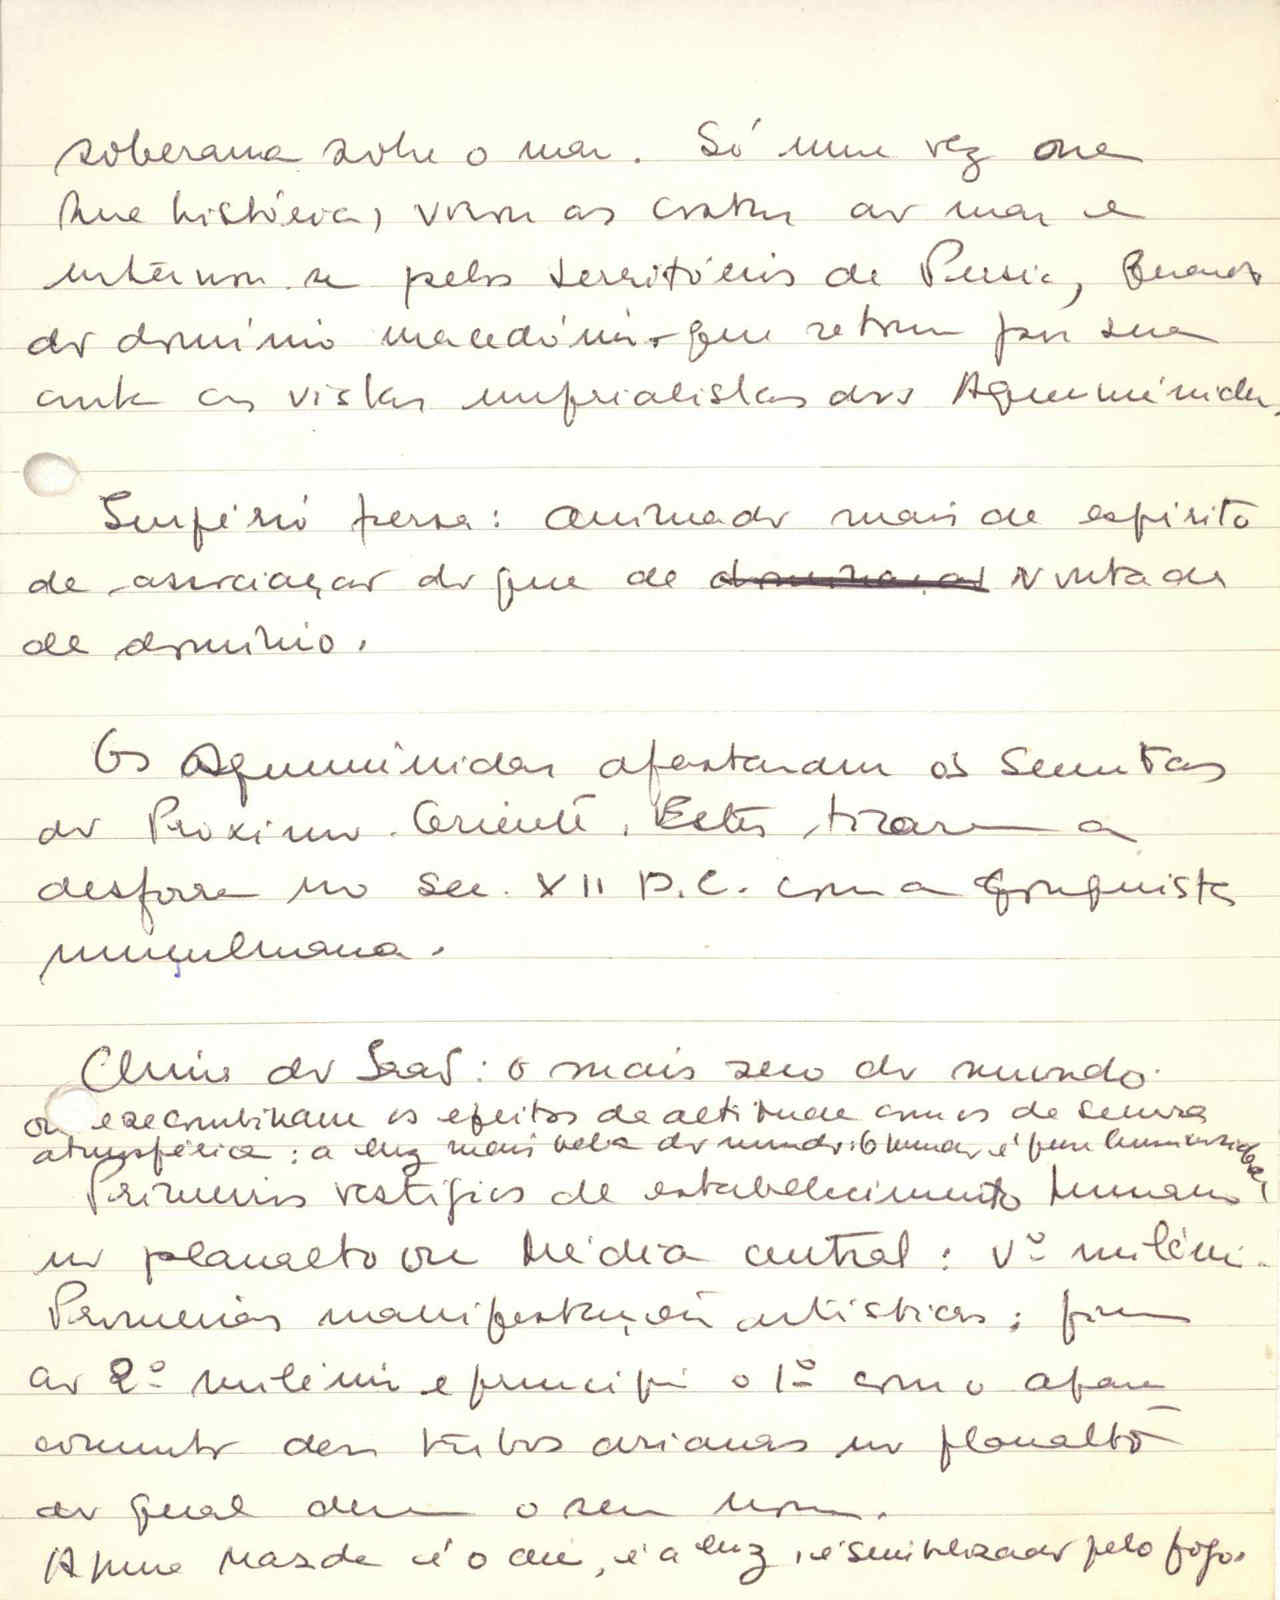 soberana sobre o mar. Só uma vez na
sua história, virou as costas ao mar e
internou-se pelos territórios da Persia, quando
do domínio macedónio que retoma por sua
conta as vistas imperialistas dos Aqueménidas.
Império persa: animado mais de espirito
de associação do que de dominação vontade
de domínio.
Os Aqueménidas afastaram os Semitas
do Proximo Oriente. Estes tiraram a
desforra no Sec. XII D.C. com a conquista
muçulmana.
Clima do Irão: o mais seco do mundo
ou e se combinam os efeitos de altitude com os de secura
atmosférica: a luz mais bela do mundo: é
Primeiros vestigios de estabelecimento humano
no planalto ou Média central: Vº milénio.
Primeiras manifestações artisticas: fim
do 2º milénio e principio o 1º com o apare
cimento das tribos arianas no planalto
ao qual deram o seu nome.
Ahura Mazda é o céu, é a luz, é simbolizado pelo fogo.